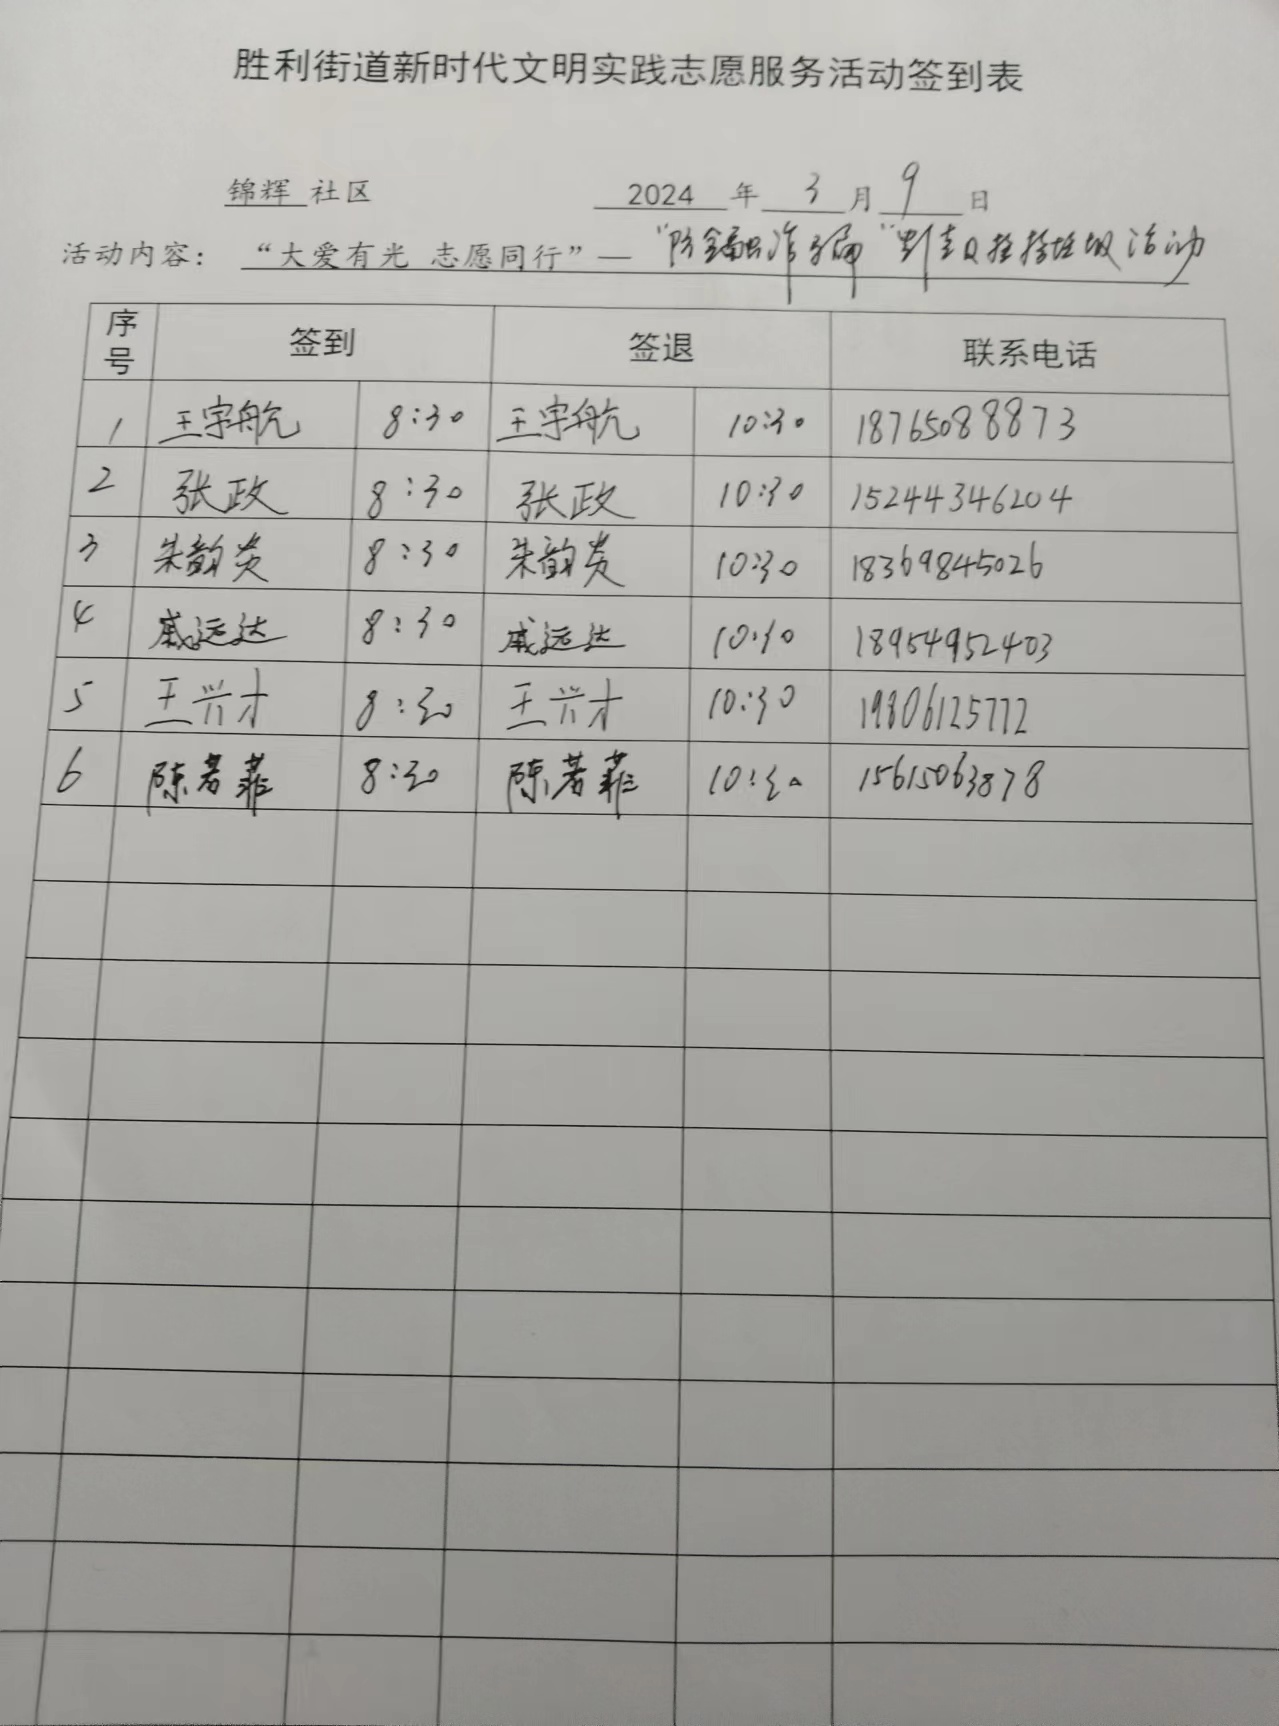 胜利街道新时代文明实践志愿服务活动签到表
锦辉 社区 2024 年 3 月 9 日
活动内容：“大爱有光 志愿同行”— “防金融诈骗” 垃圾 活动
序号 签到 签退 联系电话
1 王宇航 8:30 王宇航 10:30 18765088873
2 张政 8:30 张政 10:30 15244346204
3 朱韵 8:30 朱韵 10:30 18369845026
4 戚远达 8:30 戚远达 10:30 18954952403
5 王兴才 8:30 王兴才 10:30 19806125772
6 陈若菲 8:30 陈若菲 10:30 15615063878